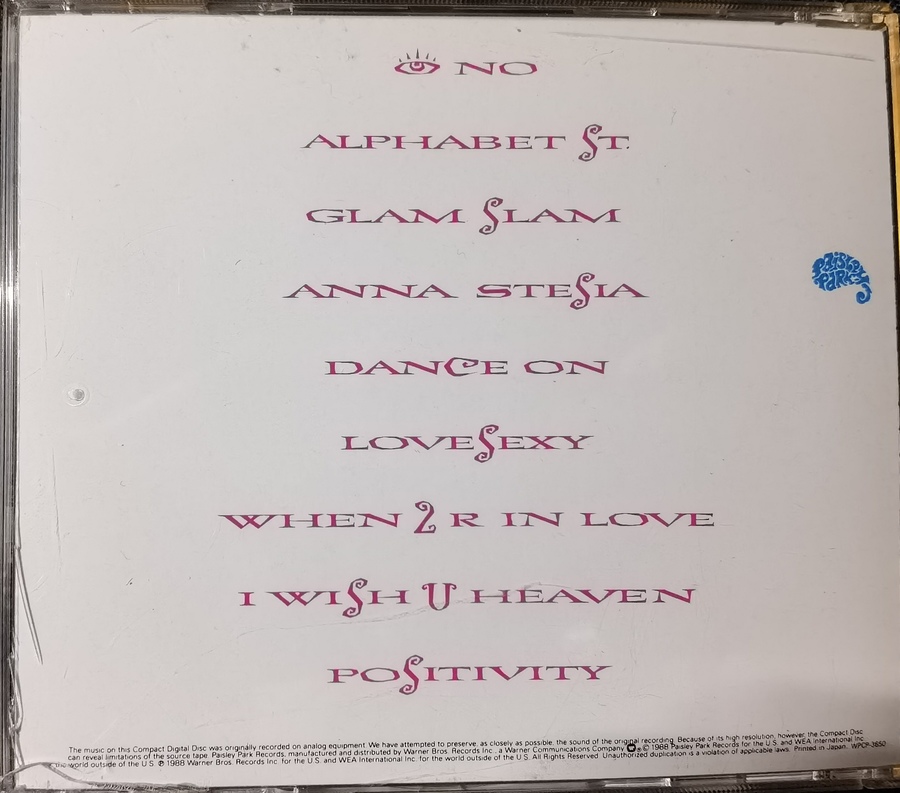 👁 NO
ALPHABET ST.
GLAM SLAM
ANNA STESIA
PAISLEY PARK
DANCE ON
LOVESEXY
WHEN 2 R IN LOVE
I WISH U HEAVEN
POSITIVITY
The music on this Compact Digital Disc was originally recorded on analog equipment. We have attempted to preserve, as closely as possible, the sound of the original recording. Because of its high resolution, however, the Compact Disc
can reveal limitations of the source tape. Paisley Park Records, manufactured and distributed by Warner Bros. Records Inc., a Warner Communications Company. ℗ © 1988 Paisley Park Records for the U.S. and WEA International Inc.
for the world outside of the U.S. ℗ 1988 Warner Bros. Records Inc. for the U.S. and WEA International Inc. for the world outside of the U.S. All Rights Reserved. Unauthorized duplication is a violation of applicable laws. Printed in Japan. WPCP-3650